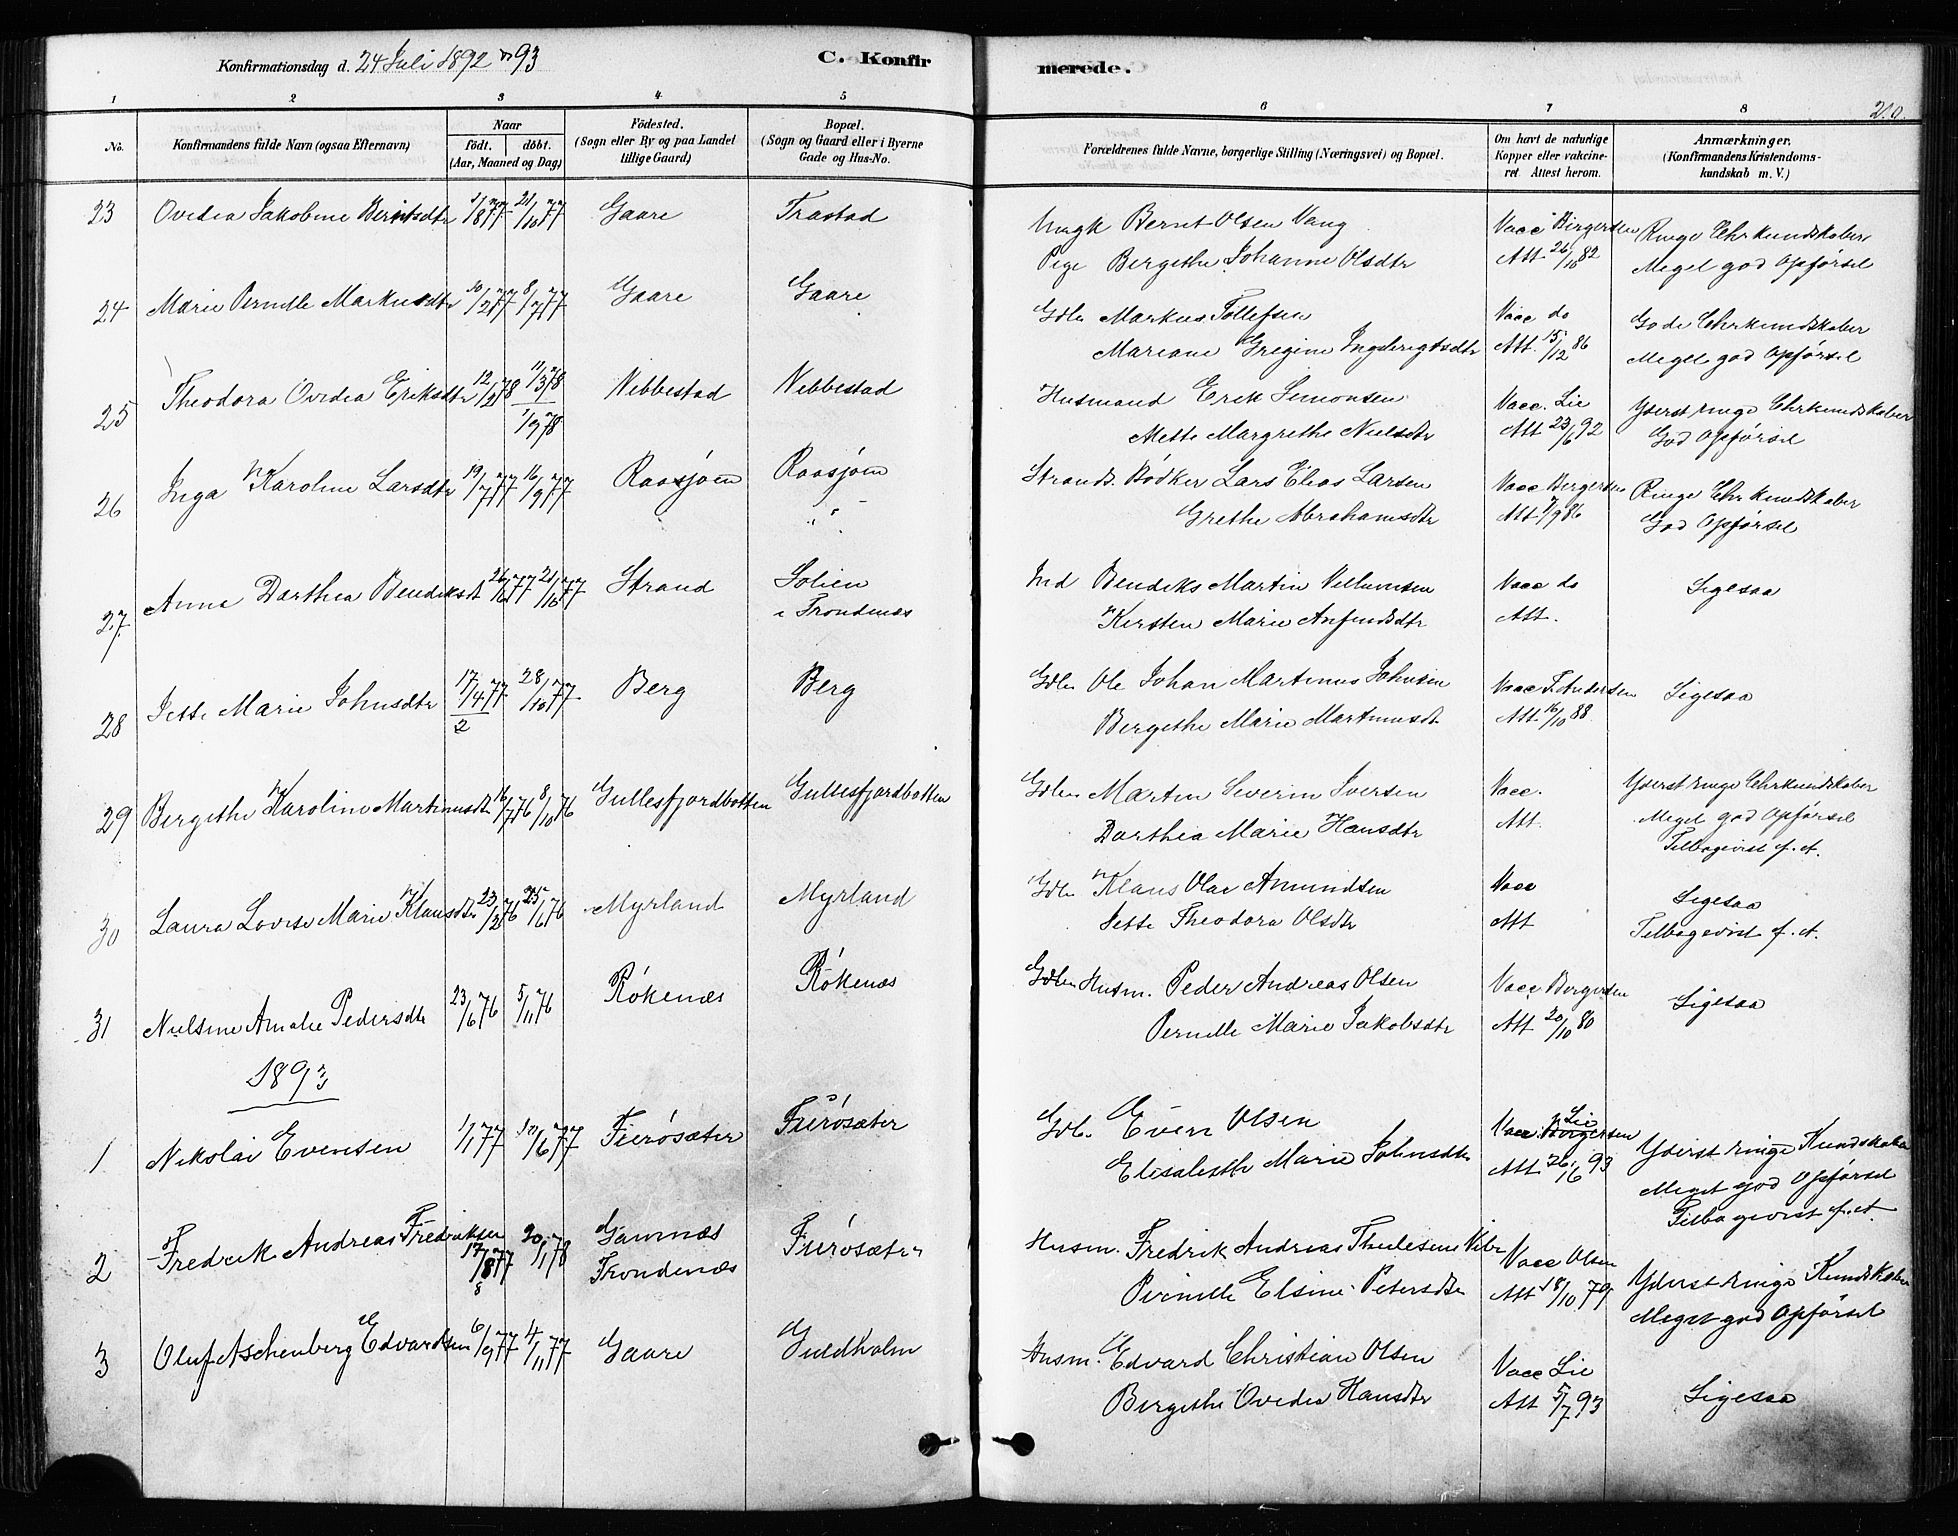 Konfirmationsdag d. 24 Juli 1892 & 93
C. Konfirmerede.
210.
1 2 3 4 5 6 7 8
No.
Konfirmandens fulde Navn (ogsaa Efternavn)
Naar
födt. döbt.
(Aar, Maaned og Dag)
Födested.
(Sogn eller By og paa Landet
tillige Gaard)
Bopæl.
(Sogn og Gaard eller i Byerne
Gade og Hus-No.
Forældrenes fulde Navne, borgerlige Stilling (Næringsvei) og Bopæl.
Om havt de naturlige
Kopper eller vakcine-
ret. Attest herom.
Anmærkninger.
(Konfirmandens Kristendoms-
kundskab m. V.)
23 Ovidia Jakobine Berntsdtr 1/8 77 21/10 77 Gaare Trastad Ungk Bernt Olsen Vang Vacc Bergersen Ringe Chrkundskaber
Pige Bergethe Johanne Olsdtr Att 26/10 82 Meget god Opførsel
24 Marie Pernille Markusdtr 10/2 77 8/7 77 Gaare Gaare Gdbr Markus Tollefsen Vacc do Gode Chrkundskaber
Mariane Gregine Ingebrigtsdtr Att. 15/12 86 Meget god Opførsel
25 Theodora Ovidia Eriksdtr 12/2 78 11/3 78 Vebbestad Vebbestad Husmand Erik Simonsen Vacc. Lie Yderst ringe Chrkundskaber
1/9 78 Mette Margrethe Nielsdtr Att 23/6 92 God Opførsel
26 Inga Karoline Larsdtr 19/7 77 16/9 77 Raasjøen Raasjøen Strands. Bødker Lars Elias Larsen Vacc Bergersen Ringe Chrkundskaber
" " Grethe Abrahamsdtr Att 7/9 86 God Opførsel
27 Anna Dorthea Bendiksdt 26/6 77 21/10 77 Strand Solien Ind Bendiks Martin Villumsen Vacc do Ligesaa
i Trondenæs Kirsten Marie Anfindsdtr Att.
28 Jette Marie Johnsdtr 17/4 77 28/10 77 Berg Berg Gdbr Ole Johan Martinus Johnsen Vacc T. Andersen Ligesaa
2 Bergethe Marie Martinusdt Att 16/10 88
29 Bergithe Karoline Martinusdt 16/7 76 8/10 76 Gullesfjordbotten Gullesfjordbotten Gdbr Martin Severin Iversen Vacc. Yderst ringe Chrkundskaber
Dorthea Marie Hansdtr Att Meget god Opførsel
Tilbagevist f. A.
30 Laura Lovise Marie Klausdtr 23/2 76 25/6 76 Myrland Myrland Gdbr Klaus Olai Amundsen Vacc Ligesaa
Jette Theodora Olsdtr Att Tilbagevist f. A.
31 Nielsine Amalie Pedersdtr 23/6 76 5/11 76 Rökenæs Rökenæs Gdbr Husm. Peder Andreas Olsen Vacc Bergersen Ligesaa
Pernille Marie Jakobsdtr Att 20/10 80
1893
1 Nikolai Evensen 1/1 77 10/6 77 Furösæter Furösæter Gdb. Even Olsen Vacc. Bergersen Lie Yderst ringe Kundskaber
Elisabeth Marie Johnsdtr Att 26/6 93 Meget god Opførsel
Tilbagevist f. A
2 Fredrik Andreas Fredriksen 17/8 77 20/1 78 Gamnæs Furösæter Husm. Fredrik Andreas Vacc Olsen Yderst ringe Kundskaber
8 Trondenæs Pernille Elsine Petersdtr Att 18/10 79 Meget god Opførsel
3 Oluf Aschenberg Edvardsen 6/9 77 4/11 77 Gaare Guldholm Husm. Edvard Christian Olsen Vacc Lie Ligesaa
Bergithe Ovidia Hansdtr Att 5/7 93